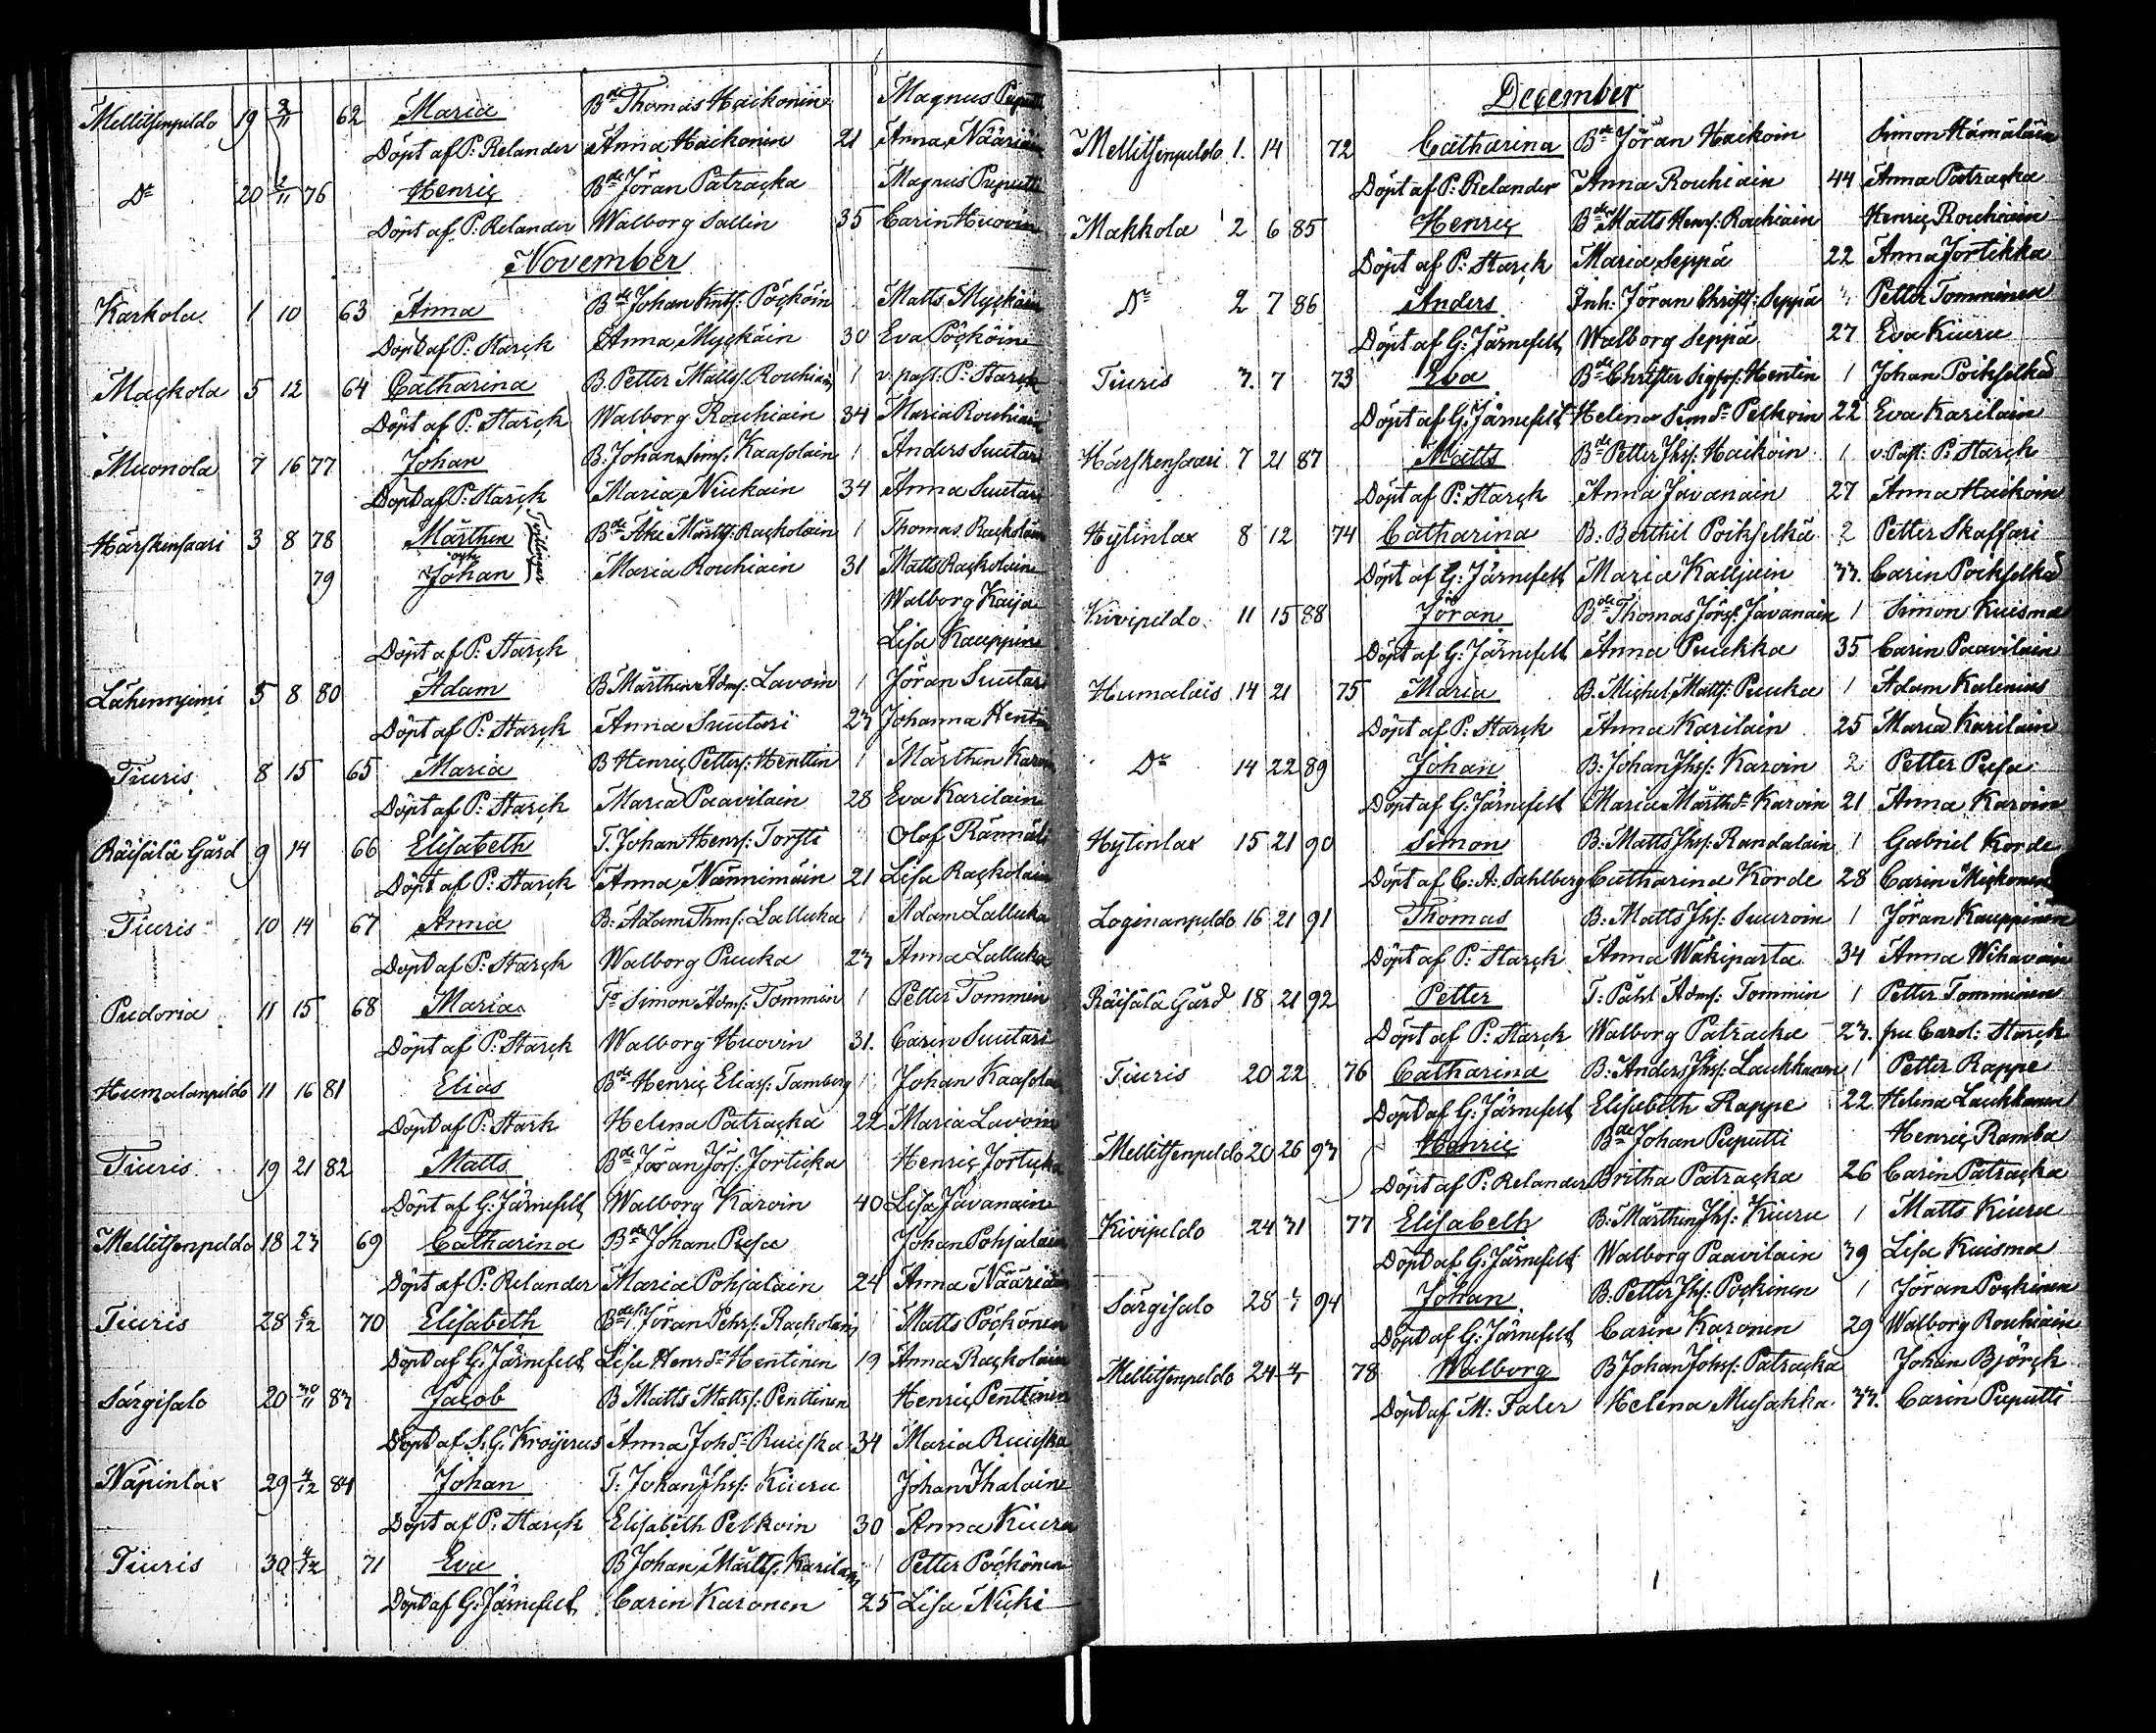 Mellitsenpeldo 19 2/11 62 Maria Bde Thomas Haikonin Magnus Puputti
Döpt af P: Relander Anna Haikonin 21 Anna Nääriäin
Do 20 2/11 76 Henric Bde Jöran Patracka Magnus Puputti
Döpt af P: Relander Walborg Sallin 35 Carin Huovin
November
Karkola 1 10 63 Anna Bde Johan Knts: Pöcköin Matts Myckäin
Döpt af P: Starck Anna Myckäin 30 Eva Pöcköin
Mackola 5 12 64 Catharina B. Petter Mattss: Rouhiain 1 v. past: P: Starck
Döpt af P: Starck Walborg Rouhiain 34 Maria Rouhiain
Muonola 7 16 77 Johan B. Johan Sims: Kaasolain 1 Anders Suutari
Döpt af P: Starck Maria Niukain 34 Anna Suutari
Härskensaari 3 8 78 Mårthen Tvillingar Bde Åke Mårtss: Rackolain 1 Thomas Rackolain
79 och Johan Maria Rouhiain 31 Matts Rackolain
Walborg Kaija
Döpt af P: Starck Lisa Kauppin
Lähennjemi 5 8 80 Adam B Mårthen Adms: Lavoin 1 Jöran Suutari
Döpt af P: Starck Anna Suutari 23 Johanna Hentin
Tiuris 8 15 65 Maria B Henric Petters: Henttin 1 Mårthen Karvin
Döpt af P: Starck Maria Paavilain 28 Eva Karilain
Räisälä Gård 9 14 66 Elisabeth T. Johan Henrs: Torsti Olof Rämäli
Döpt af P: Starck Anna Nännimäin 21 Lisa Rackolain
Tiuris 10 14 67 Anna B: Adam Thms: Lalluka 1 Adam Lalluka
Döpt af P: Starck Walborg Puuka 23 Anna Lalluka
Pudoria 11 15 68 Maria To Simon Adms: Tommin 1 Petter Tommin
Döpt af P: Starck Walborg Huovin 31. Carin Suutari
Humalanpeldo 11 16 81 Elias Bde Henric Elias: Tamberg 1 Johan Kaasolain
Döpt af P: Stark Helena Patracka 22 Maria Lavoin
Tiuris 19 21 82 Matts Bde Jöran Jörs: Jorticka Henric Jorticka
Döpt af G: Järnefelt Walborg Karvin 40 Lisa Javanain
Mellitsenpeldo 18 23 69 Catharina Bde Johan Pusa Johan Pohjalain
Döpt af P: Relander Maria Pohjalain 24 Anna Nääriäin
Tiuris 28 6/12 70 Elisabeth Bde Jöran Pehrs: Rackolain Matts Pöckönen
Döpt af G: Järnefelt Lisa Henrdr Hentinen 19 Anna Rackolain
Särgisalo 20 30/11 83 Jacob B Matts Matts: Penttinen Henric Penttinen
Döpt af S. G. Krogerus Anna Johdr Ruuska 34 Maria Ruuska
Näpinlax 29 4/12 84 Johan T: Johan Jhss: Kiuru Johan Ihalain
Döpt af P: Starck Elisabeth Pelkoin 30 Anna Kiuru
Tiuris 30 4/12 71 Eva B Johan Mårtss: Karilain 1 Petter Pöckönen
Döpt af G: Järnefelt Carin Karonen 25 Lisa Nicki
December
Mellitsenpeldo 1. 14 72 Catharina Bde Jöran Haikoin Simon Hämäläin
Döpt af P: Relander Anna Rouhiain 44 Anna Patracka
Makkola 2 6 85 Henric Bde Matts Henrs: Rouhiain Henric Rouhiain
Döpt af P: Starck Maria Seppä 22 Anna Jortikka
Do 2 7 86 Anders Inh: Jöran Christ: Seppä Petter Tomminen
Döpt af G: Järnefelt Walborg Seppä 27 Eva Kiuru
Tiuris 3. 7 73 Eva Bde Christer Sigfrs: Hentin 1 Johan Poikselkä
Döpt af G: Järnefelt Helena Simdr Pelkoin 22 Eva Karilain
Härskensaari 7 21 87 Matts Bde Petter Jhss: Haikoin 1 v. Past: P: Starck
Döpt af P: Starck Anna Javanain 27 Anna Haikoin
Hytinlax 8 12 74 Catharina B: Berthil Poikselkä 2 Petter Skaffari
Döpt af G: Järnefelt Maria Kalljuin 33. Carin Poikselkä
Kivipeldo 11 15 88 Jöran Bde Thomas Jörss: Javanain 1 Simon Kuisma
Döpt af G: Järnefelt Anna Puukka 35 Carin Paavilain
Humalais 14 21 75 Maria B. Michel Matts: Puuka 1 Adam Kalenius
Döpt af P: Starck Anna Karilain 25 Maria Karilain
Do 14 22 89 Johan B: Johan Jhss: Karvin 2 Petter Pusa
Döpt af G: Järnefelt Maria Mårthdr Karvin 21 Anna Karvin
Hytinlax 15 21 90 Simon B: Matts Jhss: Randalain 1 Gabriel Korde
Döpt af C: A: Sahlberg Catharina Korde 28 Carin Mickonen
Loginanpeldo 16 21 91 Thomas B: Matts Jhs: Suuroin 1 Jöran Kauppinen
Döpt af P: Starck Anna Wäkiparta 34 Anna Wihavain
Räisälä Gård 18 21 92 Petter T: Påhl Adms: Tommin 1 Petter Tomminen
Döpt af P: Starck Walborg Patracka 23. fru Carol: Starck
Tiuris 20 22 76 Catharina B: Anders Jhss: Laukkanen 1 Petter Rappe
Döpt af G: Järnefelt Elisabeth Rappe 22 Helena Laukkanen
Mellitsenpeldo 20 26 93 Henric Bde Johan Puputti Henric Ramba
Döpt af P: Relander Britha Patracka 26 Carin Patracka
Kivipeldo 24 31 77 Elisabeth B: Mårthen Jhs: Kiuru 1 Matts Kiuru
Döpt af G: Järnefelt Walborg Paavilain 39 Lisa Kuisma
Särgisalo 28 94 Johan B: Petter Jhs: Pockinen 1 Jöran Pockinen
Döpt af G: Järnefelt Carin Karonen 29 Walborg Rouhiain
Mellitsenpeldo 24 78 Walborg B Johan Johss: Patracka Johan Björck
Döpt af M: Faler Helena Musakka 33. Carin Puputti